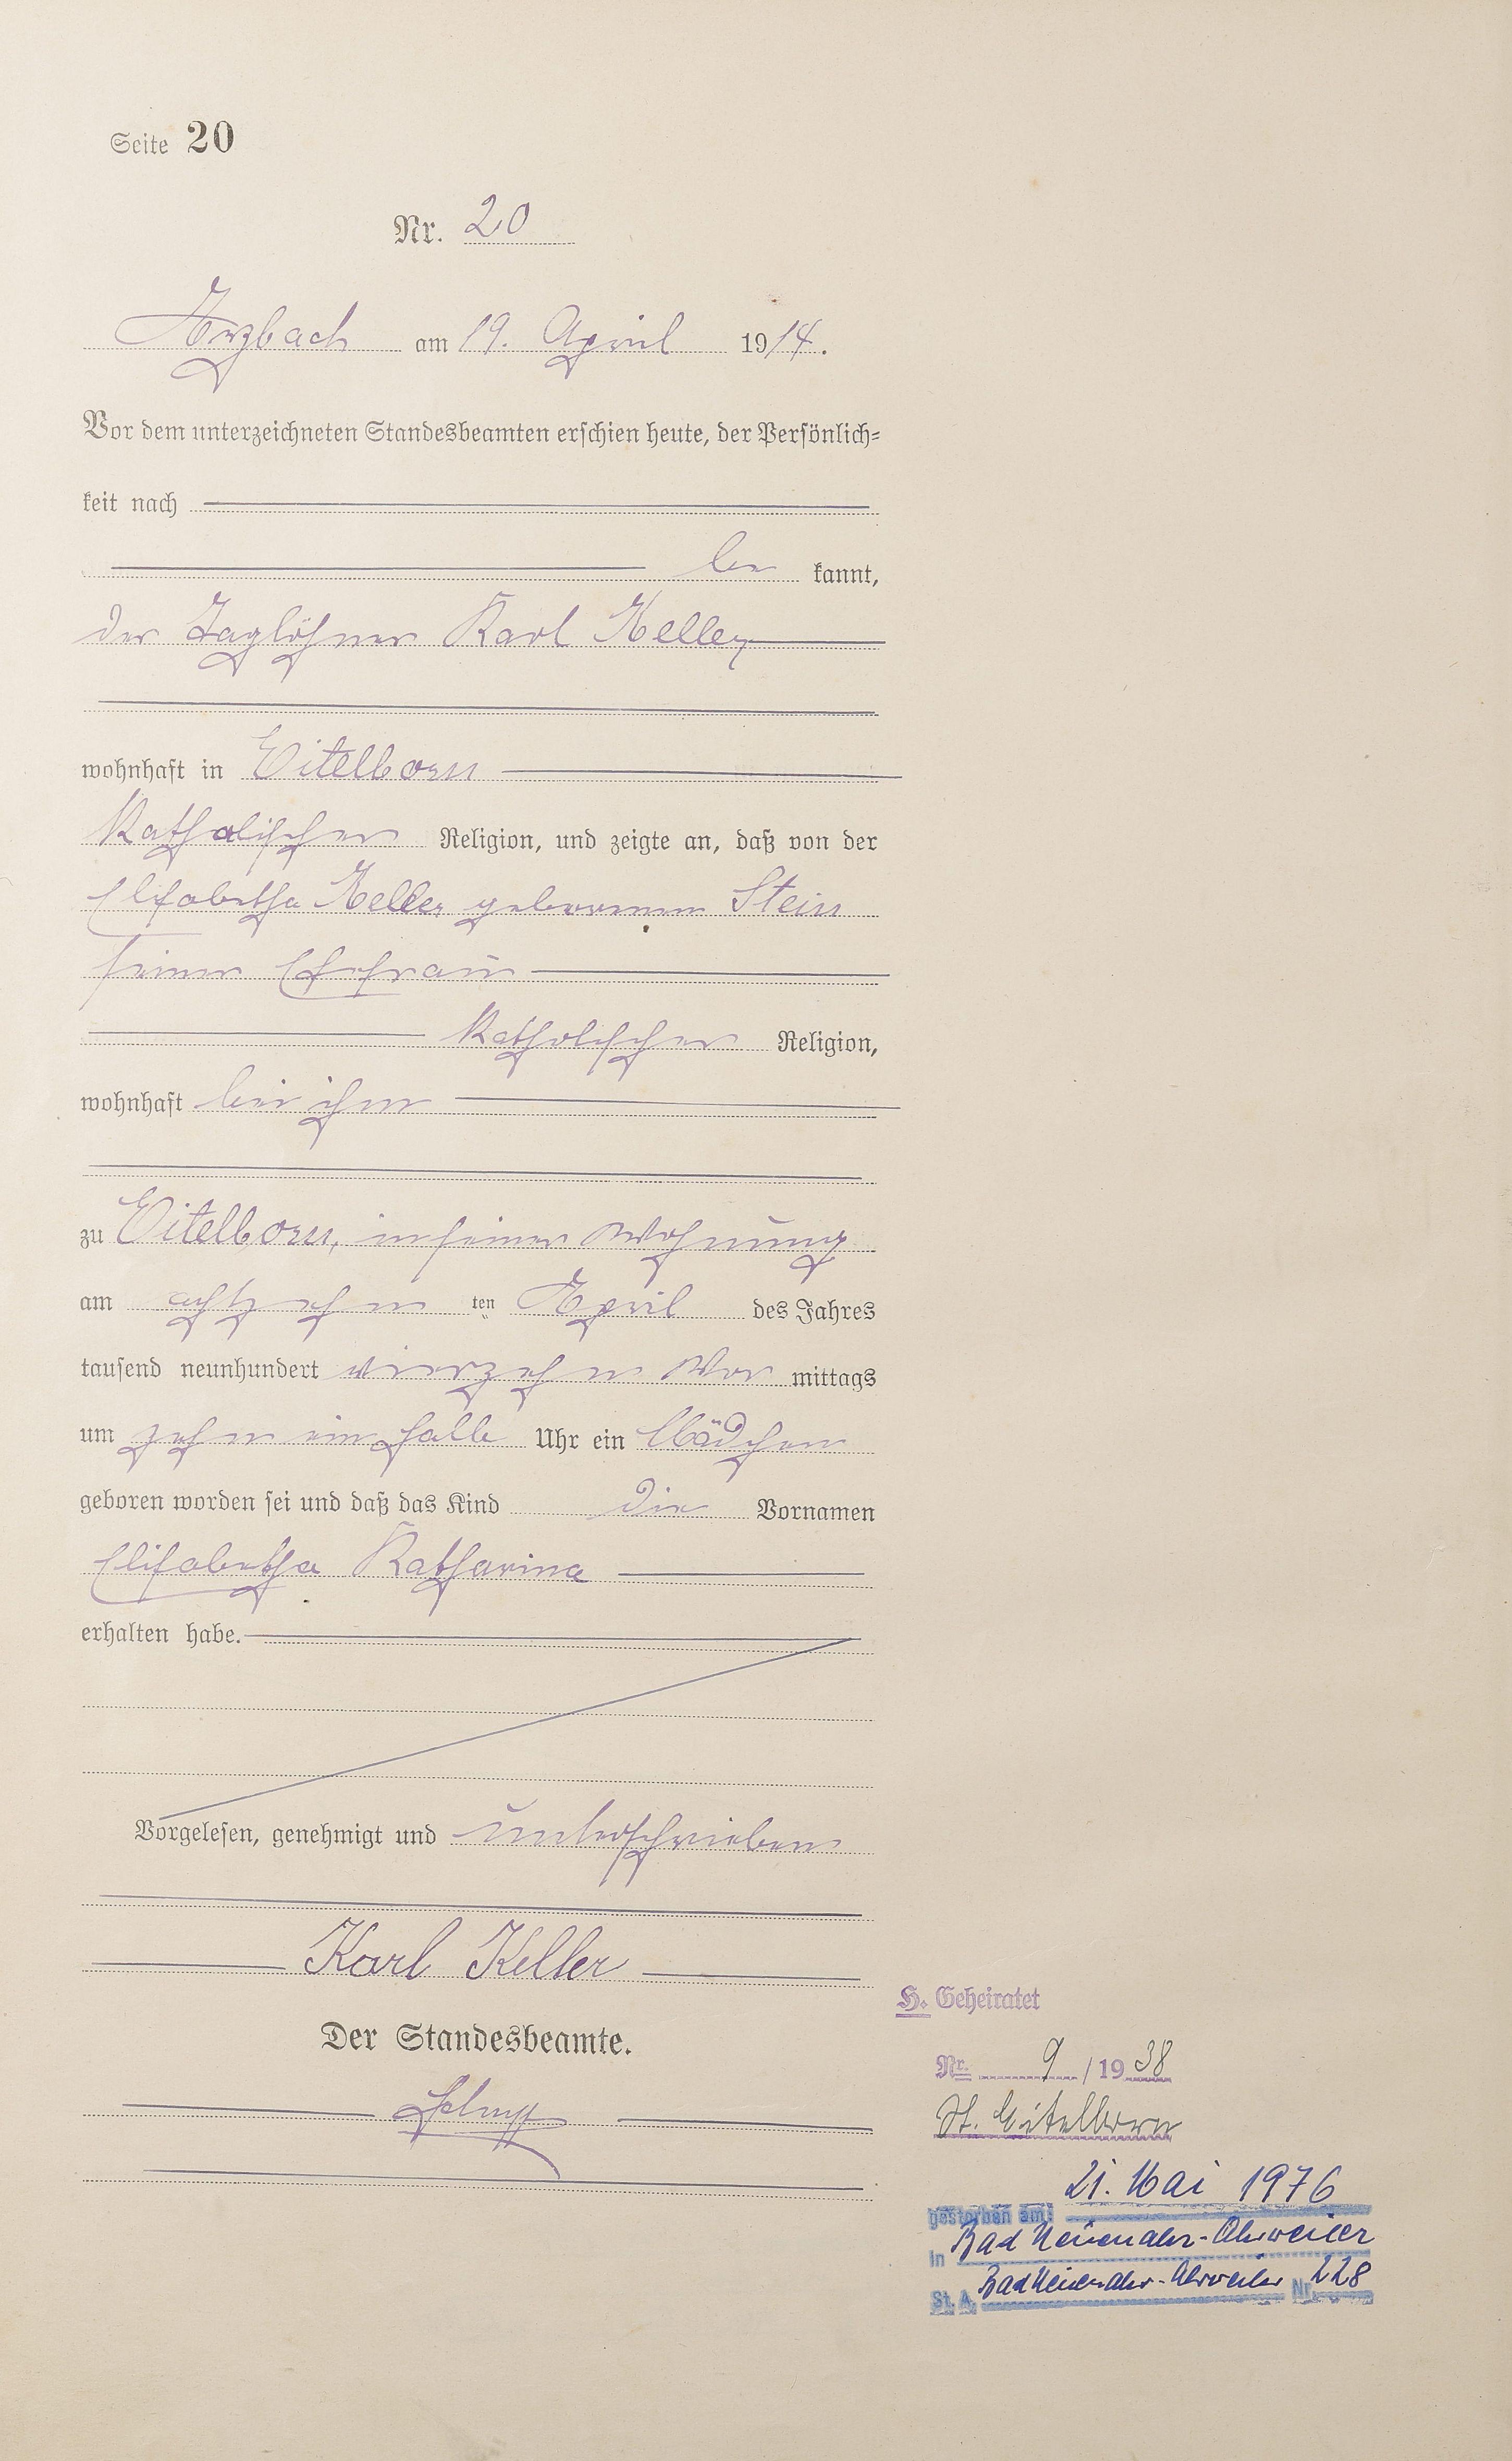 Seite 20
Nr. 20
Arzbach am 19. April 1914.
Vor dem unterzeichneten Standesbeamten erschien heute, der Persönlich=
keit nach
be kannt,
der Taglöhner Karl Keller
wohnhaft in Eitelborn
katholischer Religion, und zeigte an, daß von der
Elisabetha Keller geborenen Stein
seiner Ehefrau
katholischer Religion,
wohnhaft bei ihm
zu Eitelborn, in seiner Wohnung
am achtzehn ten April des Jahres
tausend neunhundert vierzehn Vor mittags
um zehn ein halb Uhr ein Mädchen
geboren worden sei und daß das Kind die Vornamen
Elisabetha Katharina
erhalten habe.
Vorgelesen, genehmigt und unterschrieben
Karl Keller
Der Standesbeamte.
H. Geheiratet
Nr. 9 / 19 38
St. Eitelborn
gestorben am: 21. Mai 1976
in Bad Neuenahr-Ahrweiler
St. A. Bad Neuenahr-Ahrweiler Nr. 228